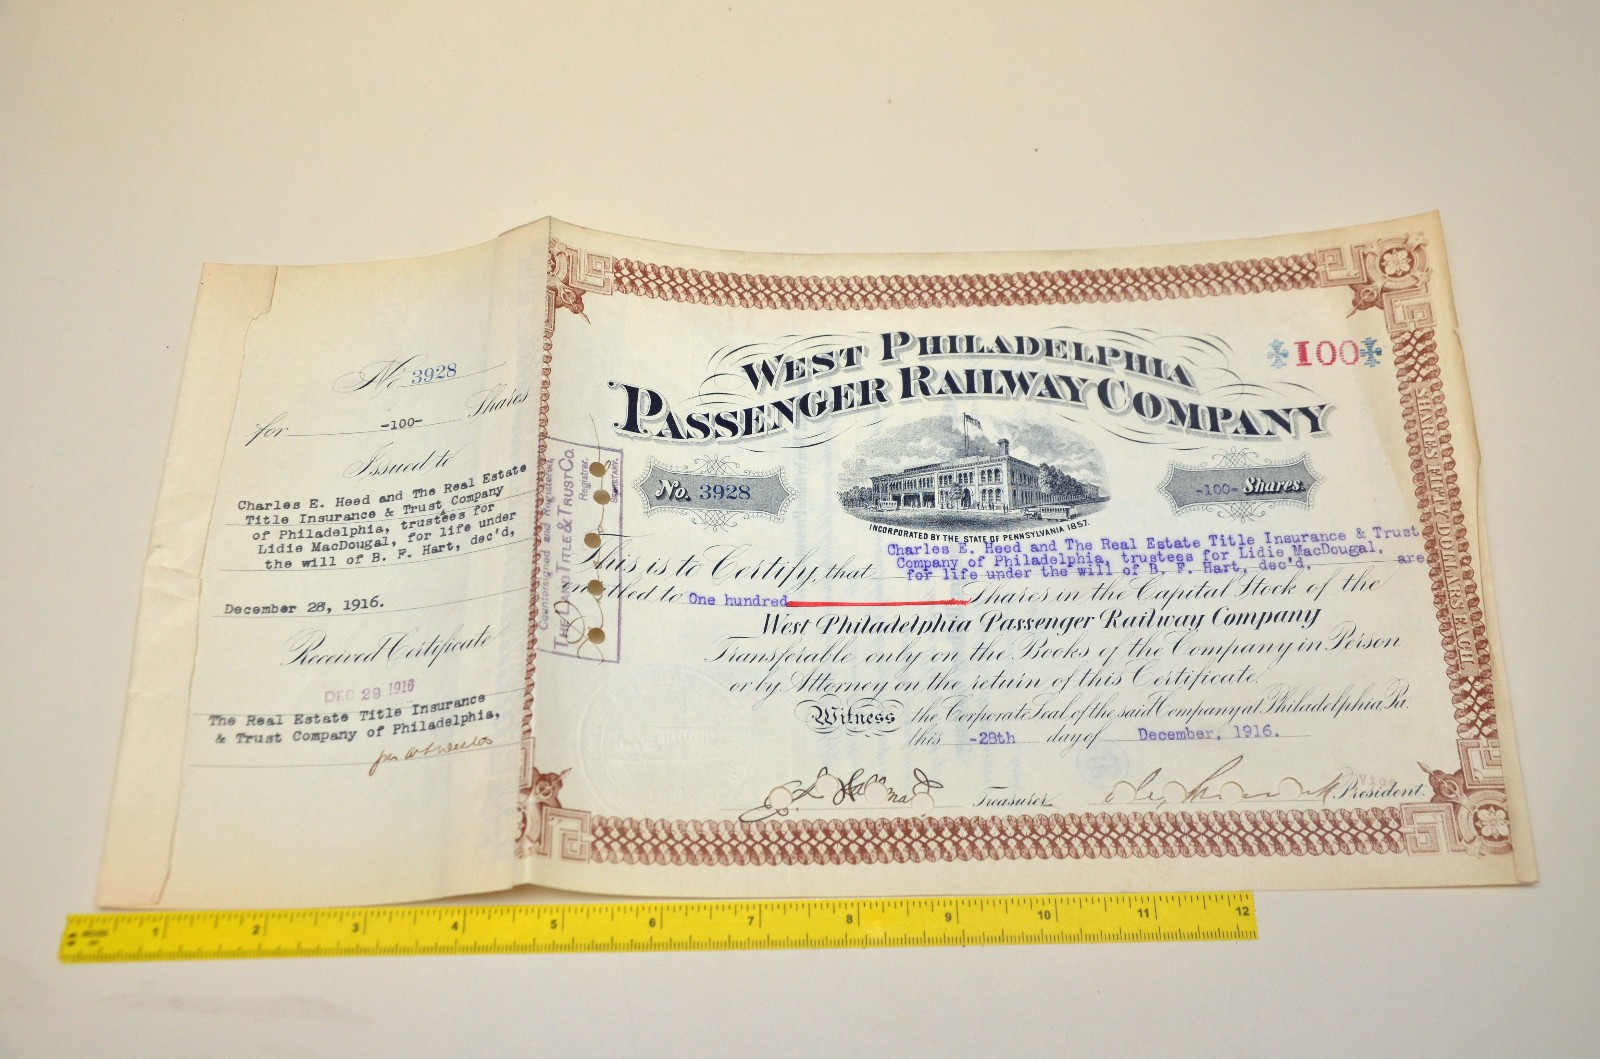 No. 3928
for -100- Shares
Issued to
Charles E. Heed and The Real Estate
Title Insurance & Trust Company
of Philadelphia, trustees for
Lidie MacDougal, for life under
the will of B. F. Hart, dec'd,
December 28, 1916.
Received Certificate
DEC 29 1916
The Real Estate Title Insurance
& Trust Company of Philadelphia,
Countersigned and Registered,
THE LAND TITLE & TRUST CO.
Registrar.
SECRETARY.
100
WEST PHILADELPHIA
PASSENGER RAILWAY COMPANY
No. 3928
-100- Shares.
INCORPORATED BY THE STATE OF PENNSYLVANIA 1857.
This is to Certify, that Charles E. Heed and The Real Estate Title Insurance & Trust
Company of Philadelphia, trustees for Lidie MacDougal,
for life under the will of B. F. Hart, dec'd, are
entitled to One hundred Shares in the Capital Stock of the
West Philadelphia Passenger Railway Company
Transferable only on the Books of the Company in Person
or by Attorney on the return of this Certificate.
Witness the Corporate Seal of the said Company at Philadelphia, Pa.
this -28th day of December, 1916.
Treasurer
Vice
President.
SHARES FIFTY DOLLARS EACH
1 2 3 4 5 6 7 8 9 10 11 12